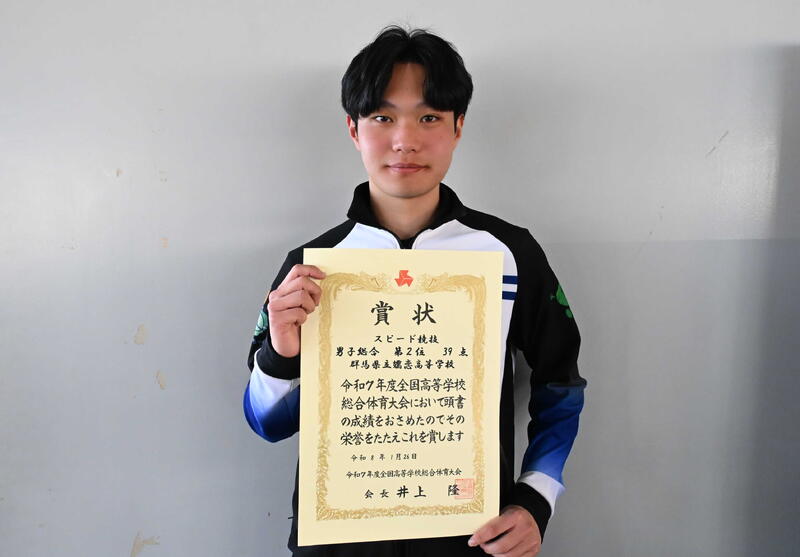 賞状
スピード競技
男子総合 第2位 39点
群馬県立嬬恋高等学校
令和7年度全国高等学校
総合体育大会において頭書
の成績をおさめたのでその
栄誉をたたえこれを賞します
令和8年1月26日
令和7年度全国高等学校総合体育大会
会長 井上 隆